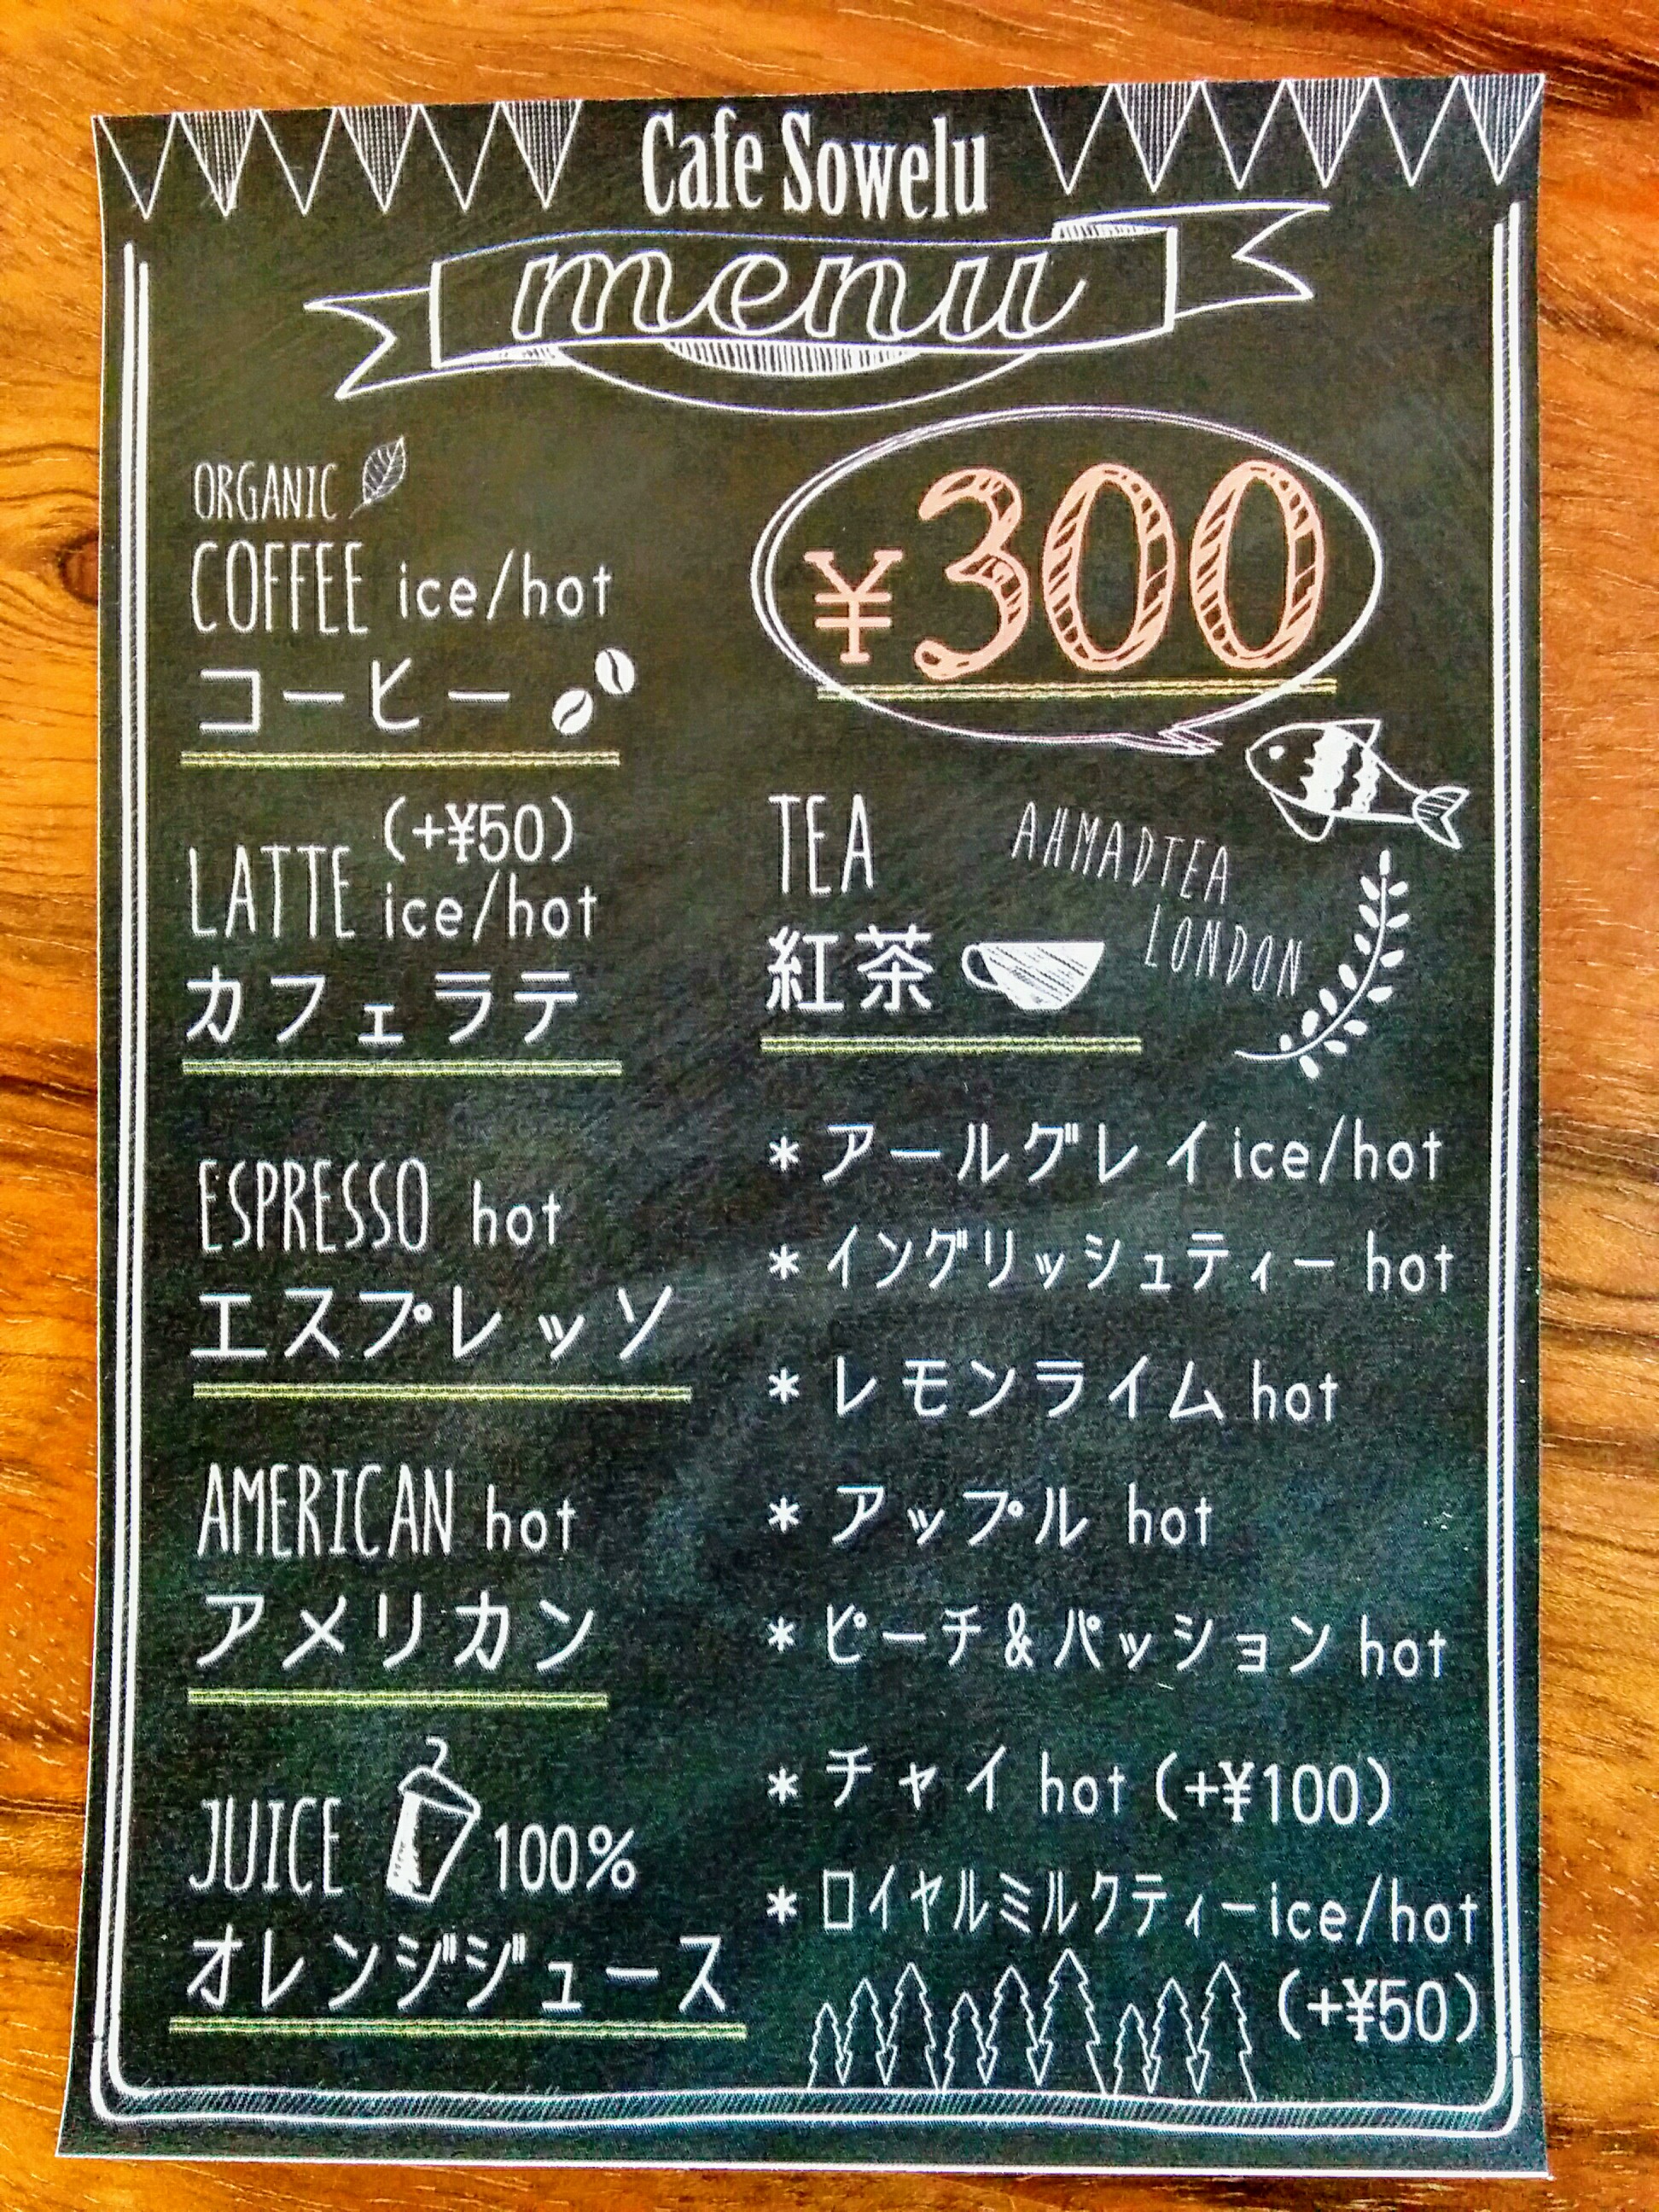 Cafe Sowelu
menu
ORGANIC
COFFEE ice/hot
コーヒー
¥300
(+¥50)
LATTE ice/hot
カフェラテ
ESPRESSO hot
エスプレッソ
AMERICAN hot
アメリカン
JUICE 100%
オレンジジュース
TEA
紅茶
AHMADTEA
LONDON
* アールグレイ ice/hot
* イングリッシュティー hot
* レモンライム hot
* アップル hot
* ピーチ&パッション hot
* チャイ hot (+¥100)
* ロイヤルミルクティー ice/hot
(+¥50)